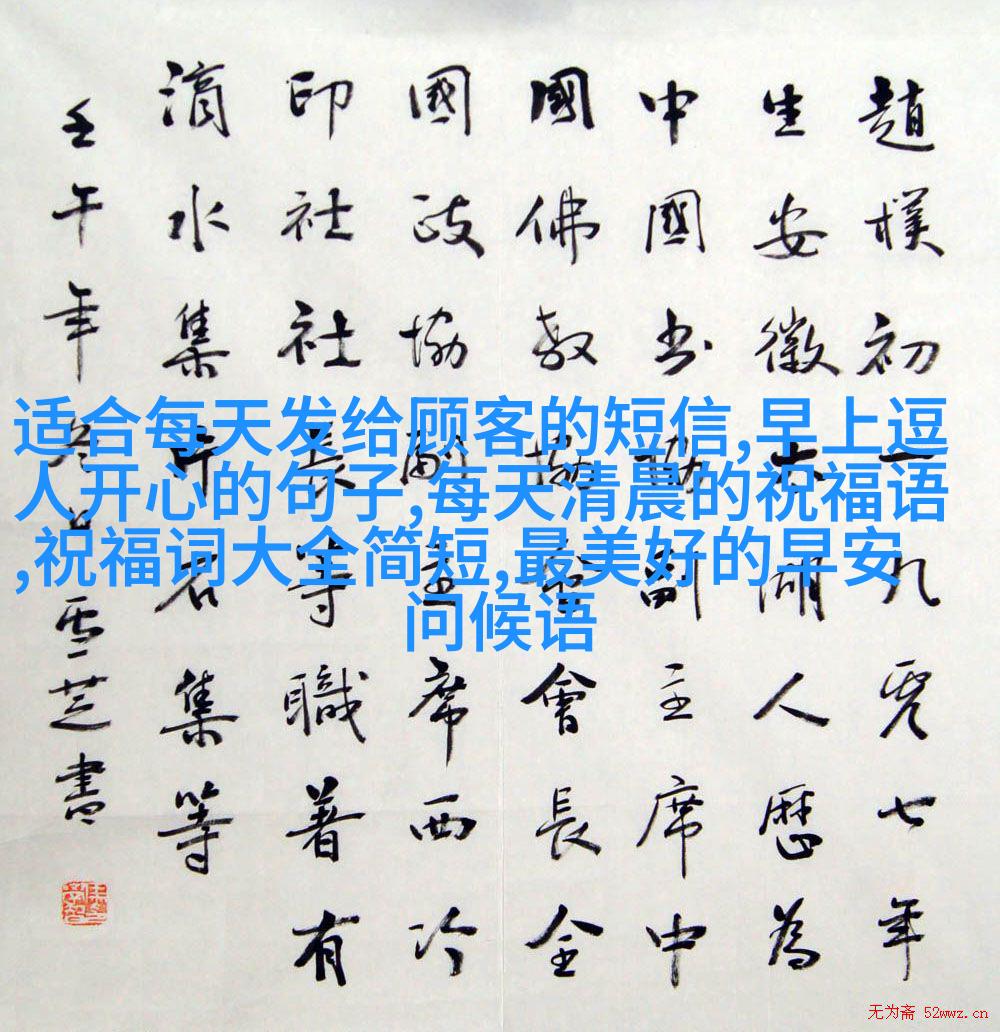 趙樸初一九零七年
生安徽太湖人歷為
中國書協副主席中
國佛教協會會長全
國政協副主席西泠
印社社長等職著有
滴水集片石集等
壬午年冬雪芝書
适合每天发给顾客的短信,早上逗
人开心的句子,每天清晨的祝福语
,祝福词大全简短,最美好的早安
问候语
无为斋 52wwz.cn